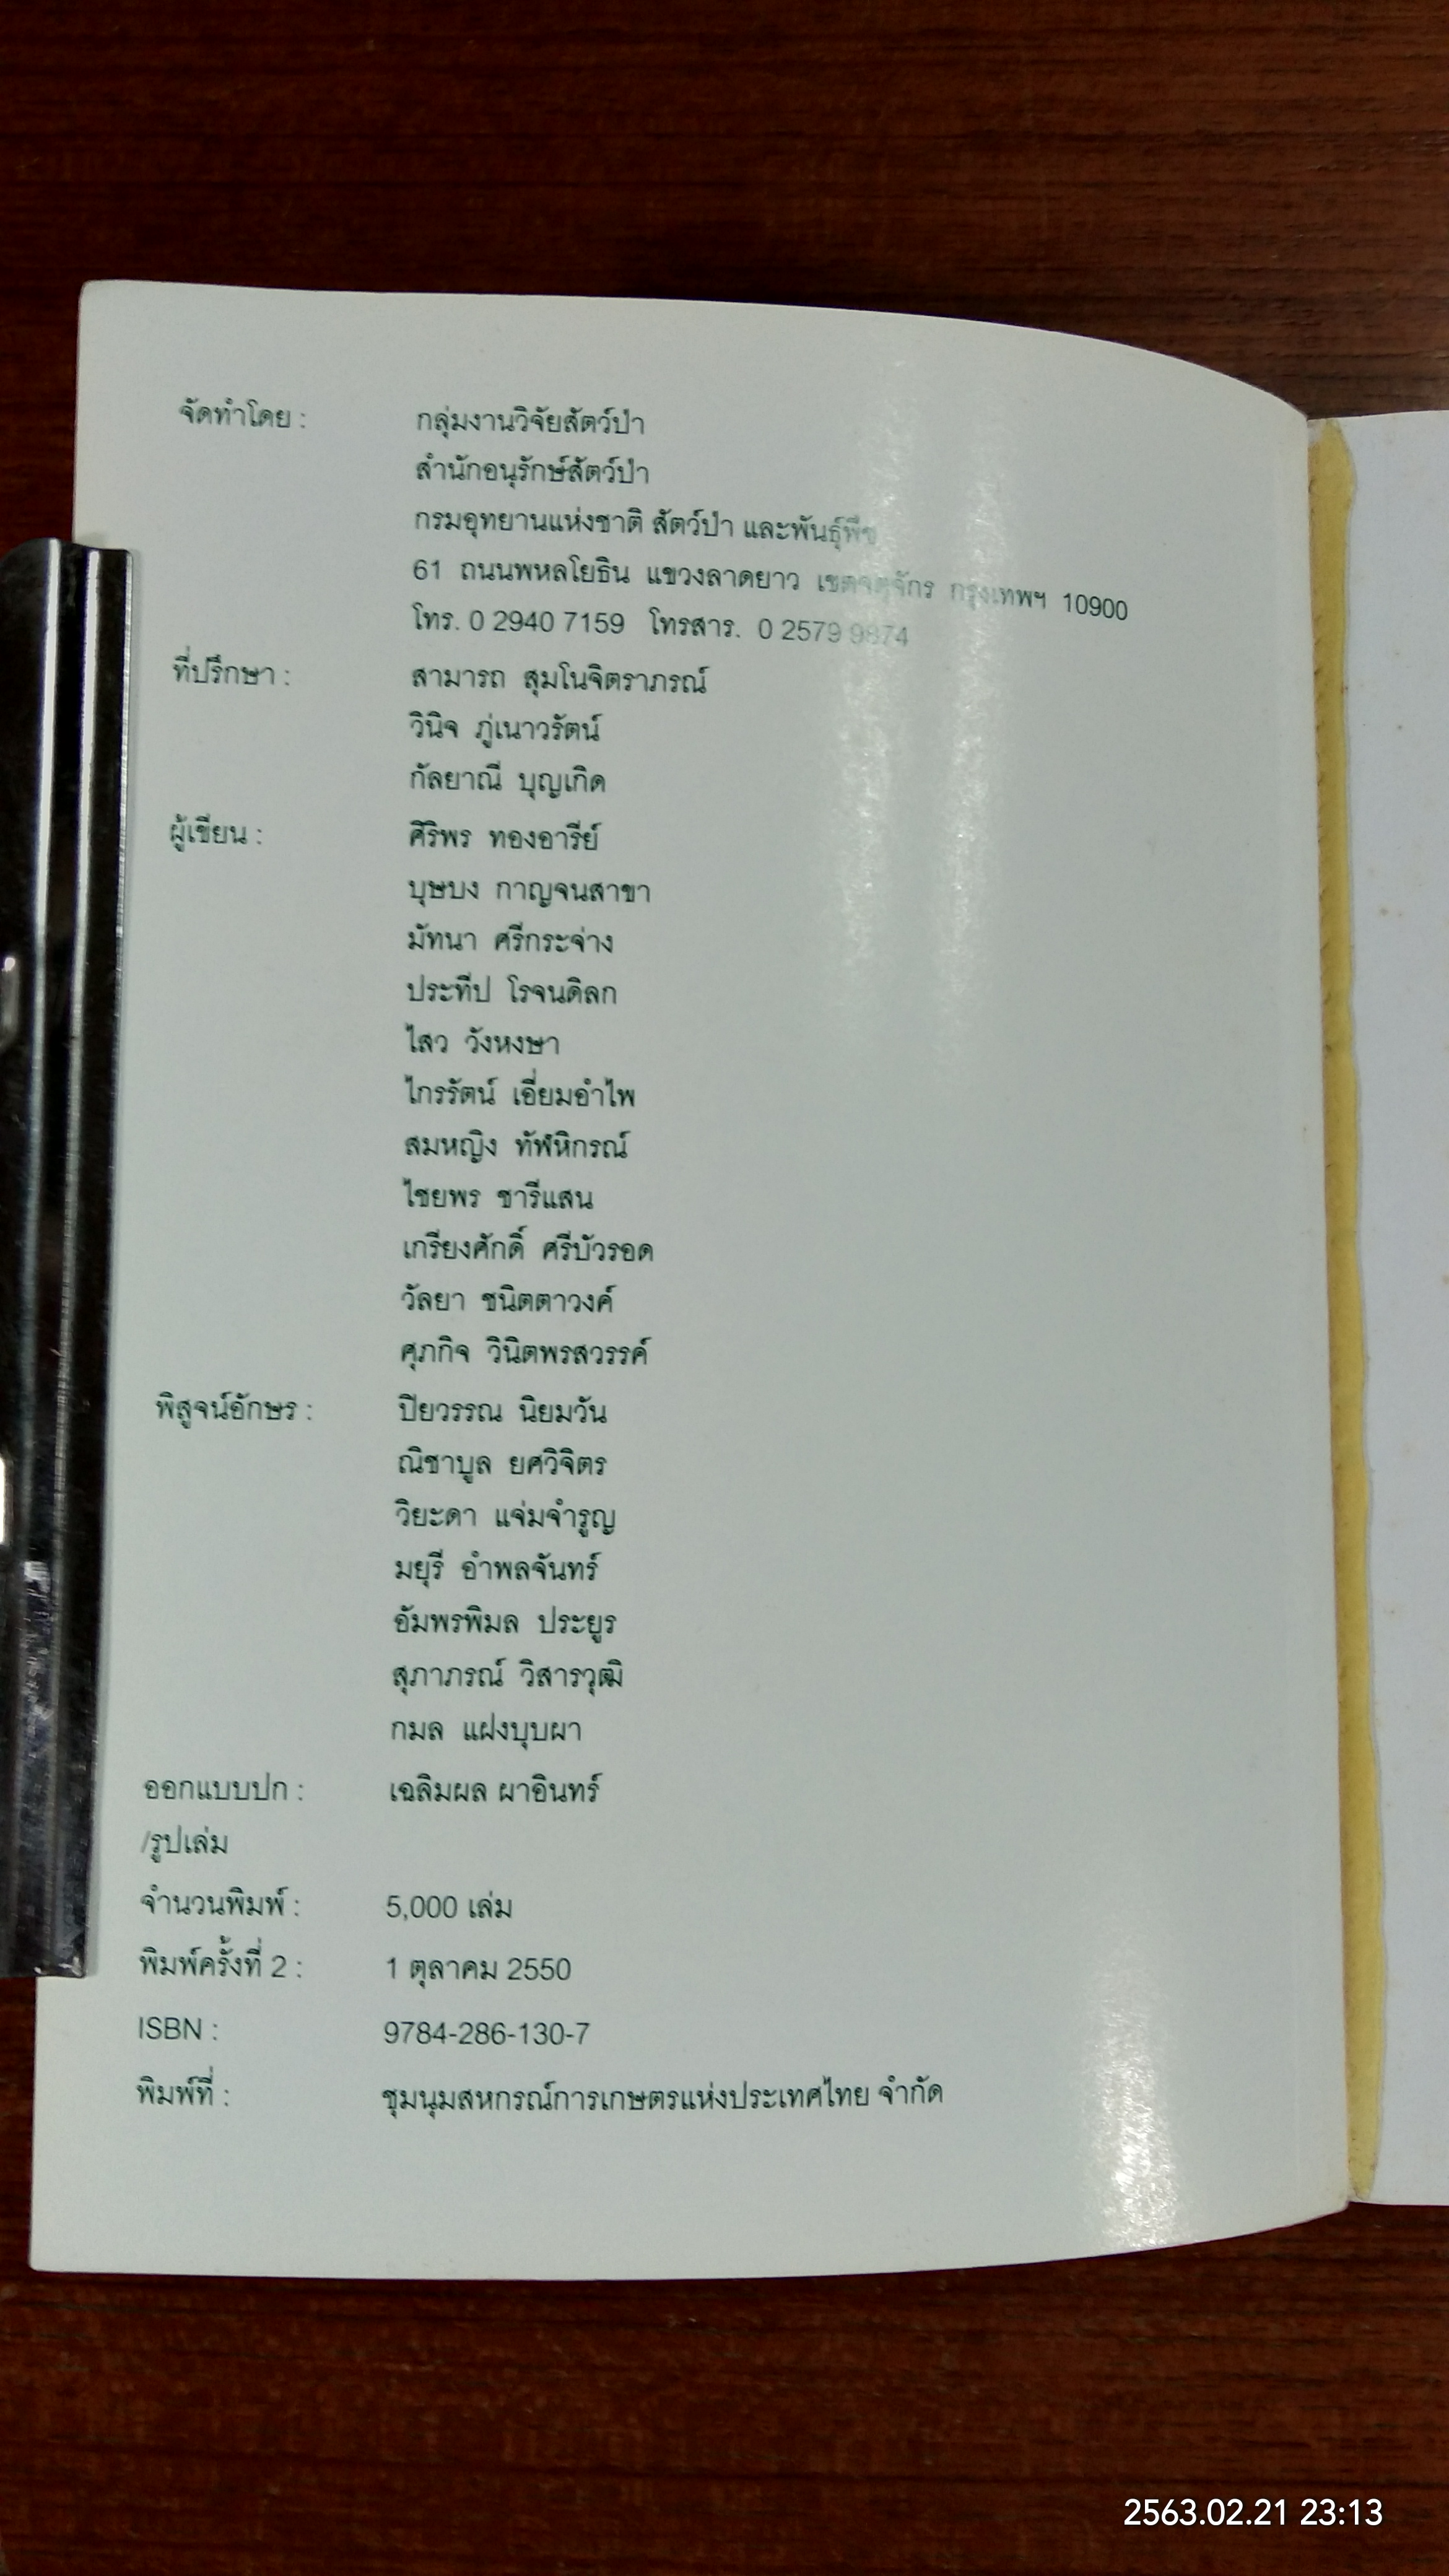 จัดทำโดย : กลุ่มงานวิจัยสัตว์ป่า
สำนักอนุรักษ์สัตว์ป่า
กรมอุทยานแห่งชาติ สัตว์ป่า และพันธุ์พืช
61 ถนนพหลโยธิน แขวงลาดยาว เขตจตุจักร กรุงเทพฯ 10900
โทร. 0 2940 7159 โทรสาร. 0 2579 9874
ที่ปรึกษา : สามารถ สุมโนจิตราภรณ์
วินิจ ภู่เนาวรัตน์
กัลยาณี บุญเกิด
ผู้เขียน : ศิริพร ทองอารีย์
บุษบง กาญจนสาขา
มัทนา ศรีกระจ่าง
ประทีป โรจนดิลก
ไสว วังหงษา
ไกรรัตน์ เอี่ยมอำไพ
สมหญิง ทัฬหิกรณ์
ไชยพร ชารีแสน
เกรียงศักดิ์ ศรีบัวรอด
วัลยา ชนิตตาวงศ์
ศุภกิจ วินิตพรสวรรค์
พิสูจน์อักษร : ปิยวรรณ นิยมวัน
ณิชาบูล ยศวิจิตร
วิยะดา แจ่มจำรูญ
มยุรี อำพลจันทร์
อัมพรพิมล ประยูร
สุภาภรณ์ วิสารวุฒิ
กมล แฝงบุบผา
ออกแบบปก : เฉลิมผล ผาอินทร์
/รูปเล่ม
จำนวนพิมพ์ : 5,000 เล่ม
พิมพ์ครั้งที่ 2 : 1 ตุลาคม 2550
ISBN : 9784-286-130-7
พิมพ์ที่ : ชุมนุมสหกรณ์การเกษตรแห่งประเทศไทย จำกัด
2563.02.21 23:13